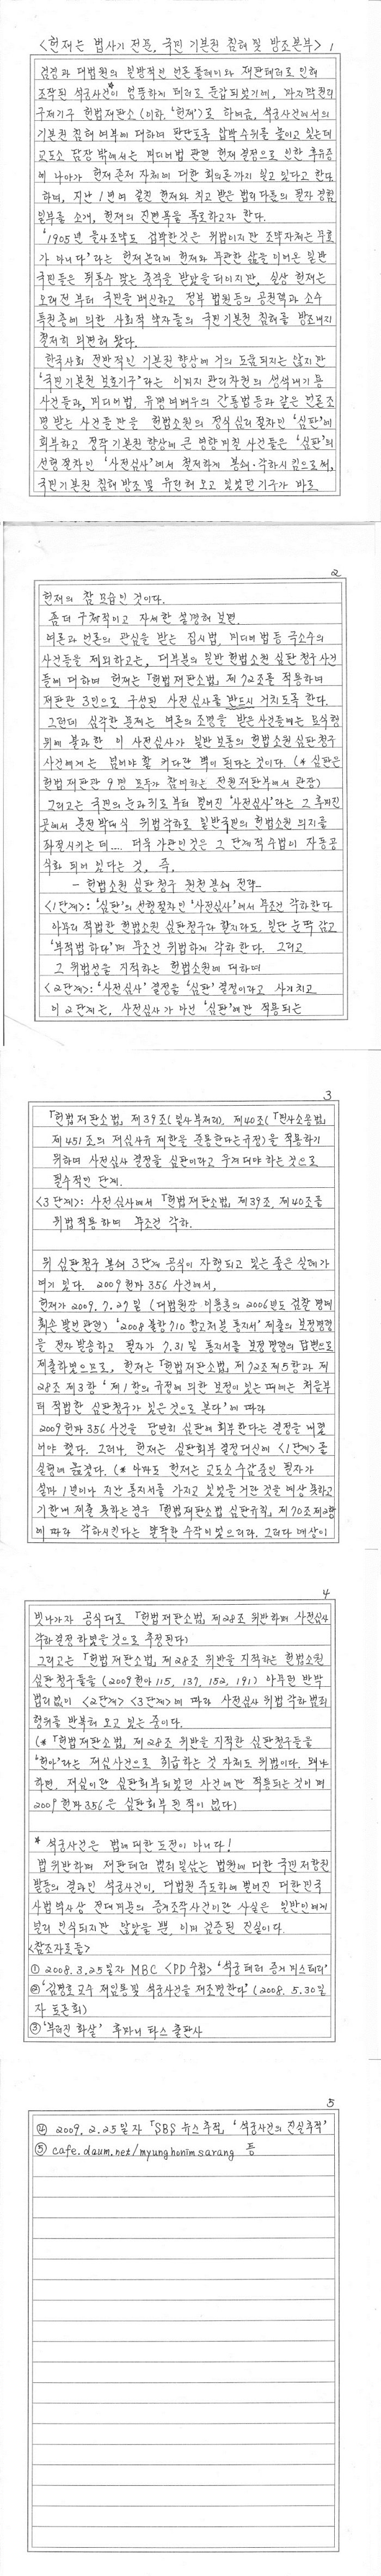 <헌재는 법사기 전문, 국민 기본권 침해 및 방조본부> 1
검경과 대법원의 일방적인 언론 플레이와 재판테러로 인해
조작된 석궁사건*이 엉뚱하게 테러로 둔갑되었기에, 마지막 권리
구제기구 헌법재판소(이하, '헌재')로 하여금, 석궁사건에서의
기본권 침해 여부에 대하여 판단토록 압박수위를 높이고 있는데
교도소 담장 밖에서는 미디어법 관련 헌재 결정으로 인한 후유증
에 나아가 헌재 존재 자체에 대한 회의론까지 일고 있다고 한다.
하여, 지난 1년여 걸친 헌재와 치고 받은 법의 다툼의 필자 경험
일부를 소개, 헌재의 진면목을 폭로하고자 한다.
'1905년 을사조약도 겁박한것은 위법이지만 조약자체는 무효
가 아니다'라는 헌재논리에 헌재와 무관한 삶을 이어온 일반
국민들은 뒤통수 맞는 충격을 받았을 터이지만, 실상 헌재는
오래전부터 국민을 배신하고 정부 법원등의 공권력과 소수
특권층에 의한 사회적 약자들의 국민기본권 침해를 방조내지
철저히 외면해 왔다.
한국사회 전반적인 기본권 향상에 거의 도움되지는 않지만
'국민기본권 보호기구'라는 이미지 관리차원의 생색내기용
사건들과, 미디어법, 유명여배우의 간통법등과 같은 언론조
명 받는 사건들만을 헌법소원의 정식 심리절차인 '심판'에
회부하고 정작 기본권 향상에 큰 영향 미칠 사건들은 '심판'의
선행절차인 '사전심사'에서 철저하게 봉쇄·각하시킴으로써,
국민기본권 침해 방조 및 유린해 오고 있었던 기구가 바로
2
헌재의 참 모습인 것이다.
좀더 구체적이고 자세한 설명해 보면,
여론과 언론의 관심을 받는 집시법, 미디어법 등 극소수의
사건들을 제외하고는, 대부분의 일반 헌법소원 심판청구 사건
들에 대하여 헌재는 「헌법재판소법」 제72조를 적용하여
재판관 3인으로 구성된 사전심사를 반드시 거치도록 한다.
그런데 심각한 문제는 여론의 조명을 받은 사건들에는 요식행
위에 불과한 이 사전심사가 일반 보통의 헌법소원 심판청구
사건에게는 넘어야할 커다란 벽이 된다는 것이다. (* 심판은
헌법재판관 9명 모두가 참여하는 전원재판부에서 관장)
그리고는 국민의 눈과 귀로부터 멀어진 '사전심사'라는 그 후미진
곳에서 문전박대식 위법각하로 일반국민의 헌법소원 의지를
좌절시키는 데.... 더욱 가관인것은 그 단계적 수법이 자동공
식화 되어 있다는 것, 즉,
- 헌법소원 심판청구 원천봉쇄 전략 -
<1단계>: '심판'의 선행절차인 '사전심사'에서 무조건 각하한다
아무리 적법한 헌법소원 심판청구라 할지라도, 일단 눈 딱 감고
'부적법하다'며 무조건 위법하게 각하한다. 그리고
그 위법성을 지적하는 헌법소원에 대하여
<2단계>: '사전심사' 결정을 '심판' 결정이라고 사기치고
이 2단계는, 사전심사가 아닌 '심판'에만 적용되는
3
「헌법재판소법」 제39조(일사부재리), 제40조(「민사소송법」
제451조의 재심사유 제한을 준용한다는 규정)을 적용하기
위하여 사전심사 결정을 심판이라고 우겨대야 하는 것으로
필수적인 단계.
<3단계>: 사전심사에서 「헌법재판소법」 제39조, 제40조를
위법적용하여 무조건 각하.
위 심판청구 봉쇄 3단계 공식이 자행되고 있는 좋은 실례가
여기 있다. 2009헌마356 사건에서,
헌재가 2009. 7. 27일 (대법원장 이용훈의 2006년도 검찰 명예
훼손 발언 관련) '2008 불항710 항고처분 통지서' 제출의 보정명령
을 전자 발송하고 필자가 7.31일 통지서를 보정명령의 답변으로
제출하였으므로, 헌재는 「헌법재판소법」 제72조 제5항과 제
28조 제3항 '제1항의 규정에 의한 보정이 있는 때에는 처음부
터 적법한 심판청구가 있은 것으로 본다'에 따라
2009헌마356 사건을 당연히 심판에 회부한다는 결정을 내렸
어야 했다. 그러나, 헌재는 심판회부 결정대신에 <1단계>를
실행에 옮겼다. (* 아마도 헌재는 교도소 수감중인 필자가
설마 1년이나 지난 통지서를 가지고 있었을거란 것을 예상 못하고
기한내 제출 못하는 경우 「헌법재판소법 심판규칙」 제70조 제2항
에 따라 각하시킨다는 얄팍한 수작이었으리라. 그러다 예상이
4
빗나가자 공식대로 「헌법재판소법」 제28조 위반하며 사전심사
각하결정 하였을 것으로 추정된다)
그리고는 「헌법재판소법」 제28조 위반을 지적하는 헌법소원
심판청구들을 (2009헌아 115, 137, 152, 191) 아무런 반박
법리없이 <2단계> <3단계>에 따라 사전심사 위법 각하 범죄
행위를 반복해 오고 있는 중이다.
(* 「헌법재판소법」 제28조 위반을 지적한 심판청구들을
'헌아'라는 재심사건으로 취급하는 것 자체도 위법이다. 왜냐
하면, 재심이란 심판회부되었던 사건에만 적용되는 것이며
2009헌마356은 심판회부 된 적이 없다)
* 석궁사건은 법에 대한 도전이 아니다!
법 위반하며 재판테러 범죄 일삼는 법원에 대한 국민저항권
발동의 결과인 석궁사건이, 대법원 주도하에 벌어진 대한민국
사법역사상 전대미문의 증거조작사건이란 사실은 일반인에게
널리 인식되지만 않았을 뿐, 이미 검증된 진실이다.
<참조자료들>
① 2008.3.25일자 MBC <PD수첩> '석궁테러 증거 미스테리'
② '김명호 교수 재임용 및 석궁사건을 재조명한다' (2008. 5.30일
자 토론회)
③ '부러진 화살' 후마니타스 출판사
5
④ 2009. 2. 25일자 「SBS 뉴스추적」 '석궁사건의 진실추적'
⑤ cafe.daum.net/myunghonimsarang 등